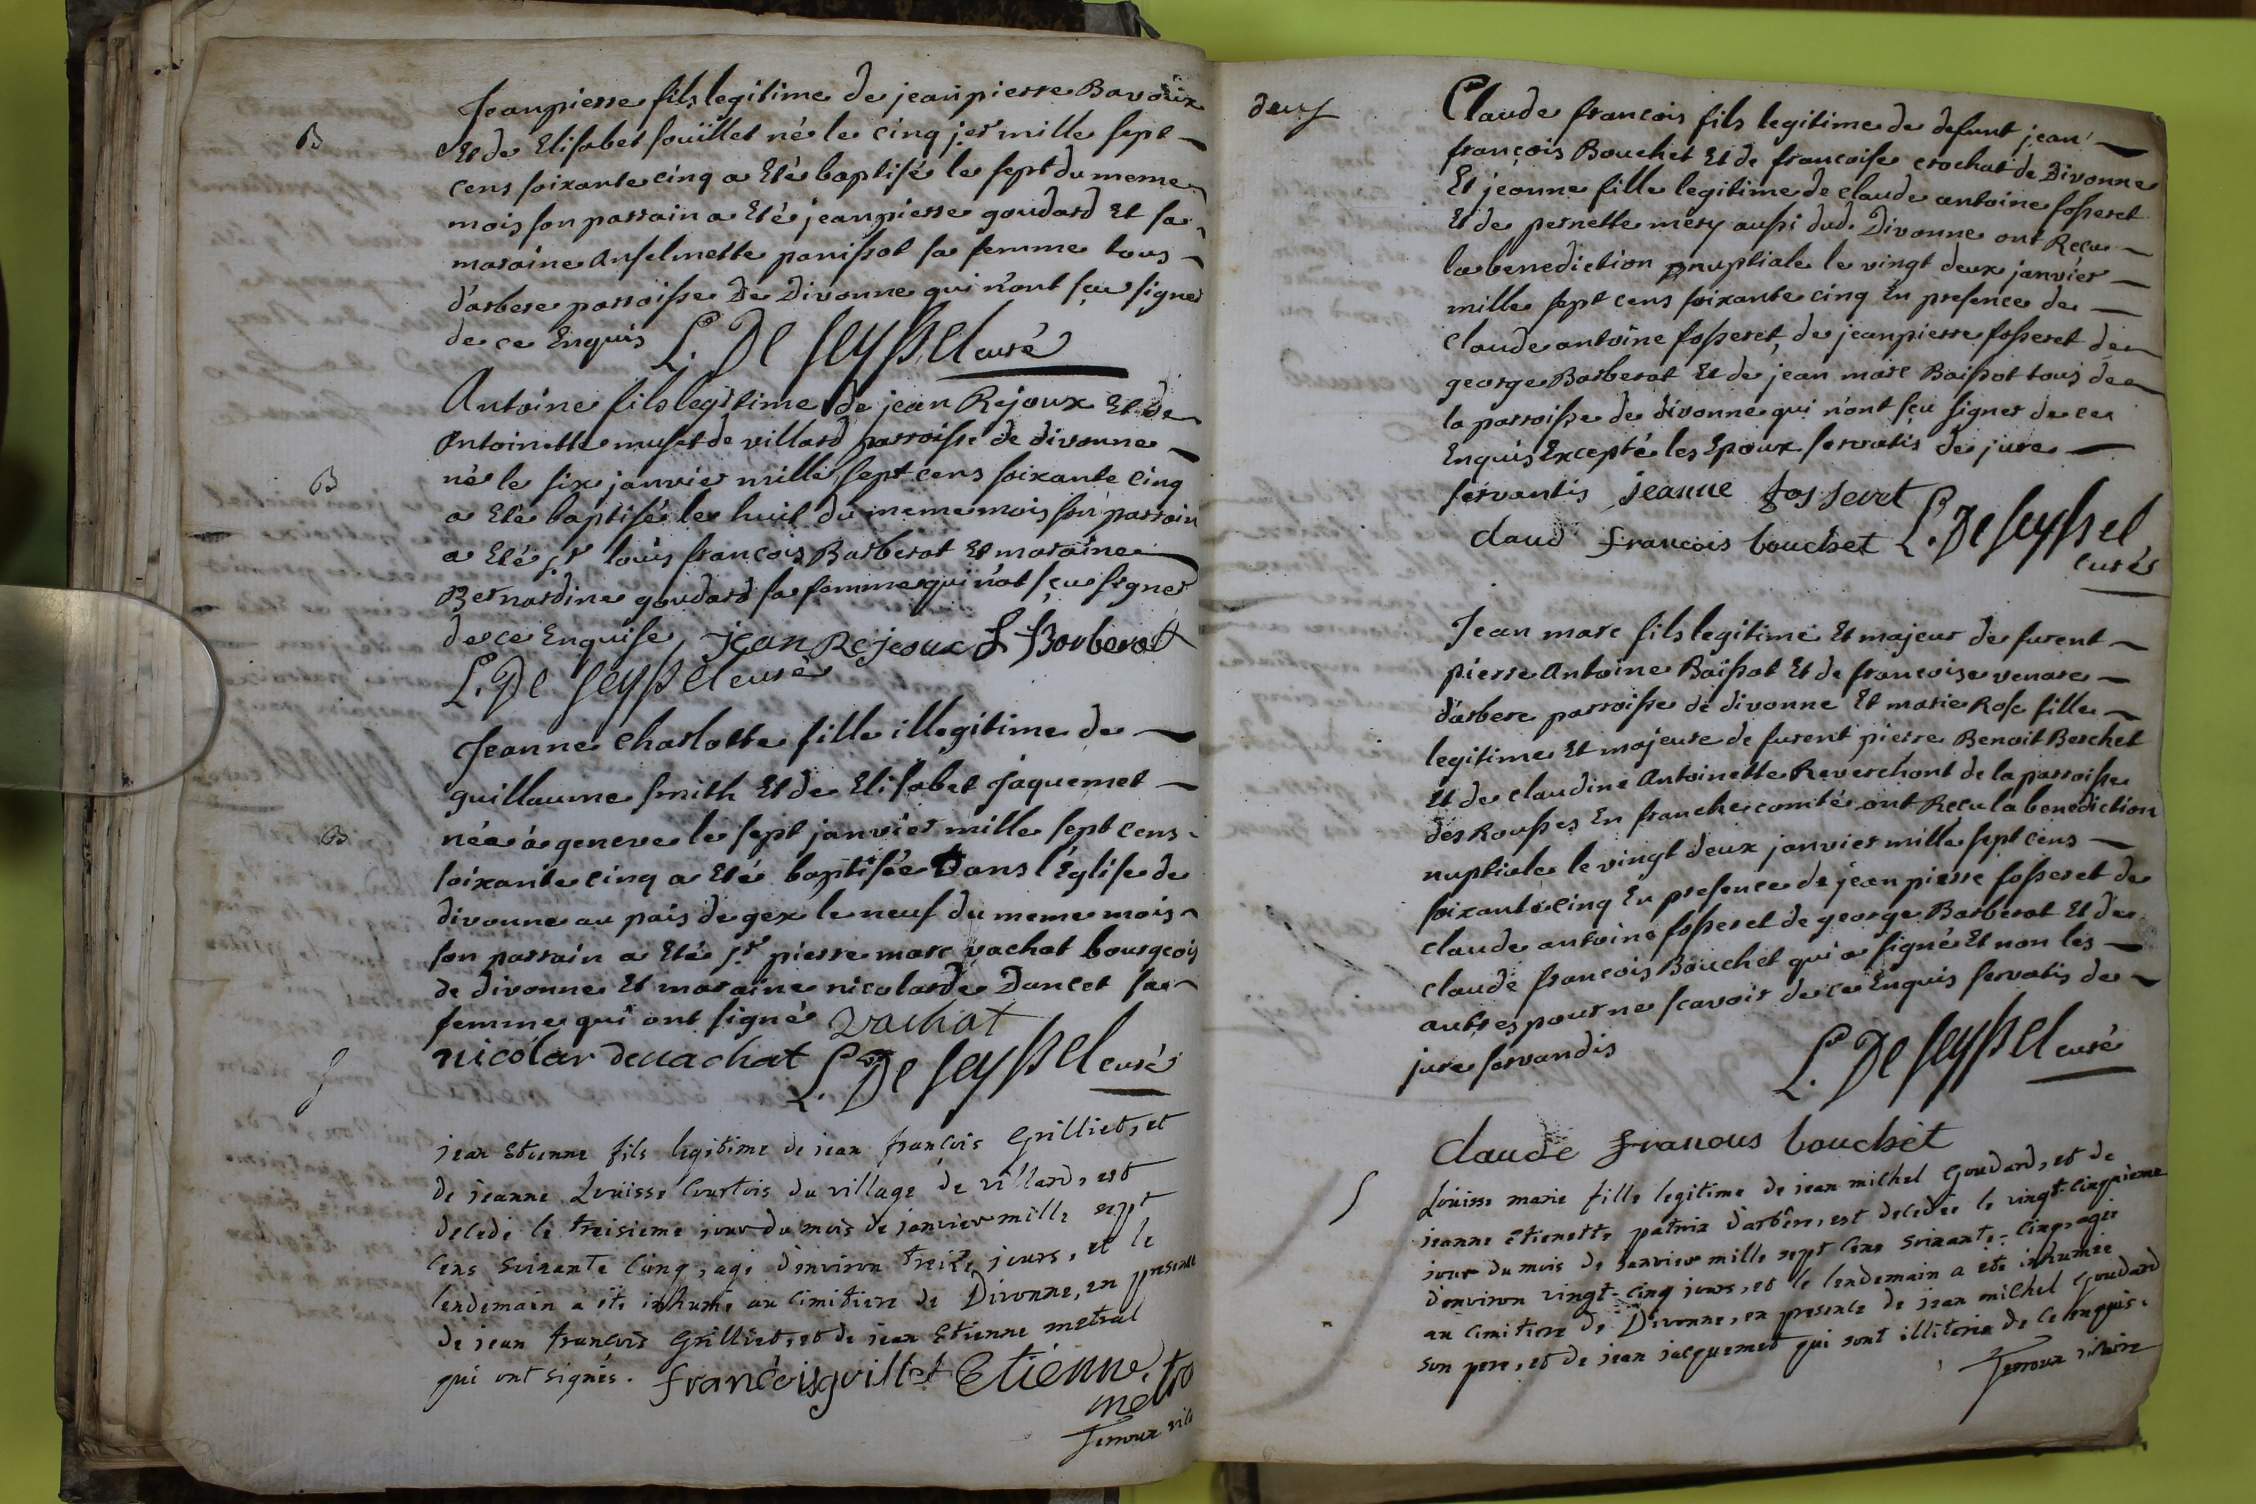 Jeanpierre fils legitime de jeanpierre Bavoux
B
Et de Elisabet souillet né le cinq j.er mille sept
cens soixante cinq a Eté baptisé le sept du meme
mois son parrain a Eté jeanpierre goudard Et sa
maraine Anselmette panissot sa femme tous
d'arbere parroisse De Divonne qui n'ont sçu signer
de ce Enquis L. De Seyssel curé
Antoine fils legitime de jean Rejoux Et de
Antoinette muset de villard parroisse de divonne
B
né le six janvier mille sept cens soixante cinq
a Eté baptisé le huit du meme mois son parrain
a Eté s.r loüis francois Barberat Et maraine
Bernardine goudard sa femme qui n'at sçu signer
de ce Enquise jean Rejoux L Borberat
L. De Seyssel curé
Jeanne charlotte fille illegitime de
guillaume smith Et de Elisabet jaquemet
B
née à geneve le sept janvier mille sept cens
soixante cinq a Eté baptisée Dans l'Eglise de
divonne au païs de gex le neuf du meme mois
son parrain a Eté s.r pierre marc vachat bourgeois
de divonne Et maraine nicolarde Dancet sa
femme qui ont signé vachat
nicolar de vachat L. De Seyssel curé
S
jean Etienne fils legitime de jean francois Grilliet, et
de jeanne Loüisse Courtois du village de villard, est
decedé le treisieme jour du mois de janvier mille sept
cens soixante cinq, agé d'environ treize jours, et le
lendemain a eté inhumé au cimitiere de Divonne, en presence
de jean francois Grilliet, et de jean Etienne metral
qui ont signés. francois grillet Etienne
metra
Jenoux vic
deux
Claude francois fils legitime de defunt jean
françois Bouchet Et de francoise crochat de Divonne
Et jeanne fille legitime de claude antoine fosseret
Et de pernette mery aussi dud. Divonne ont Reçu
la benediction nuptiale le vingt deux janvier
mille sept cens soixante cinq En presence de
claude antoine fosseret, de jeanpierre fosseret de
george Barberat Et de jean marc Baissat tous de
la parroisse de divonne qui n'ont sçu signer de ce
Enquis Excepté les Epoux servatis de jure
servantis jeanne fosseret
claud francois bouchet L. De Seyssel
curé
Jean marc fils legitime Et majeur de furent
pierre Antoine Baissat Et de francoise venare
d'arbere parroisse de divonne Et marie Rose fille
legitime Et majeure de furent pierre Benoit Berchet
Et de claudine Antoinette Reverchont de la parroisse
des Rousses En franche comté ont Reçu la benediction
nuptiale le vingt deux janvier mille sept cens
soixante cinq En presence de jean pierre fosseret de
claude antoine fosseret de george Barberat Et de
claude francois Bouchet qui a signé Et non les
autres pour ne scavoir de ce Enquis servatis de
jure servandis L. De Seyssel curé
claude francous bouchet
S
Loüisse marie fille legitime de jean michel Goudard, et de
jeanne etienette d'arbere, est decedée le vingt-cinquieme
jour du mois de janvier mille sept cens soixante-cinq, agée
d'environ vingt-cinq jours, et le lendemain a eté inhumée
au cimitiere de Divonne, en presence de jean michel Goudard
son pere, et de jean jacquemet qui sont illiterés de ce enquis.
Jenoux vicaire